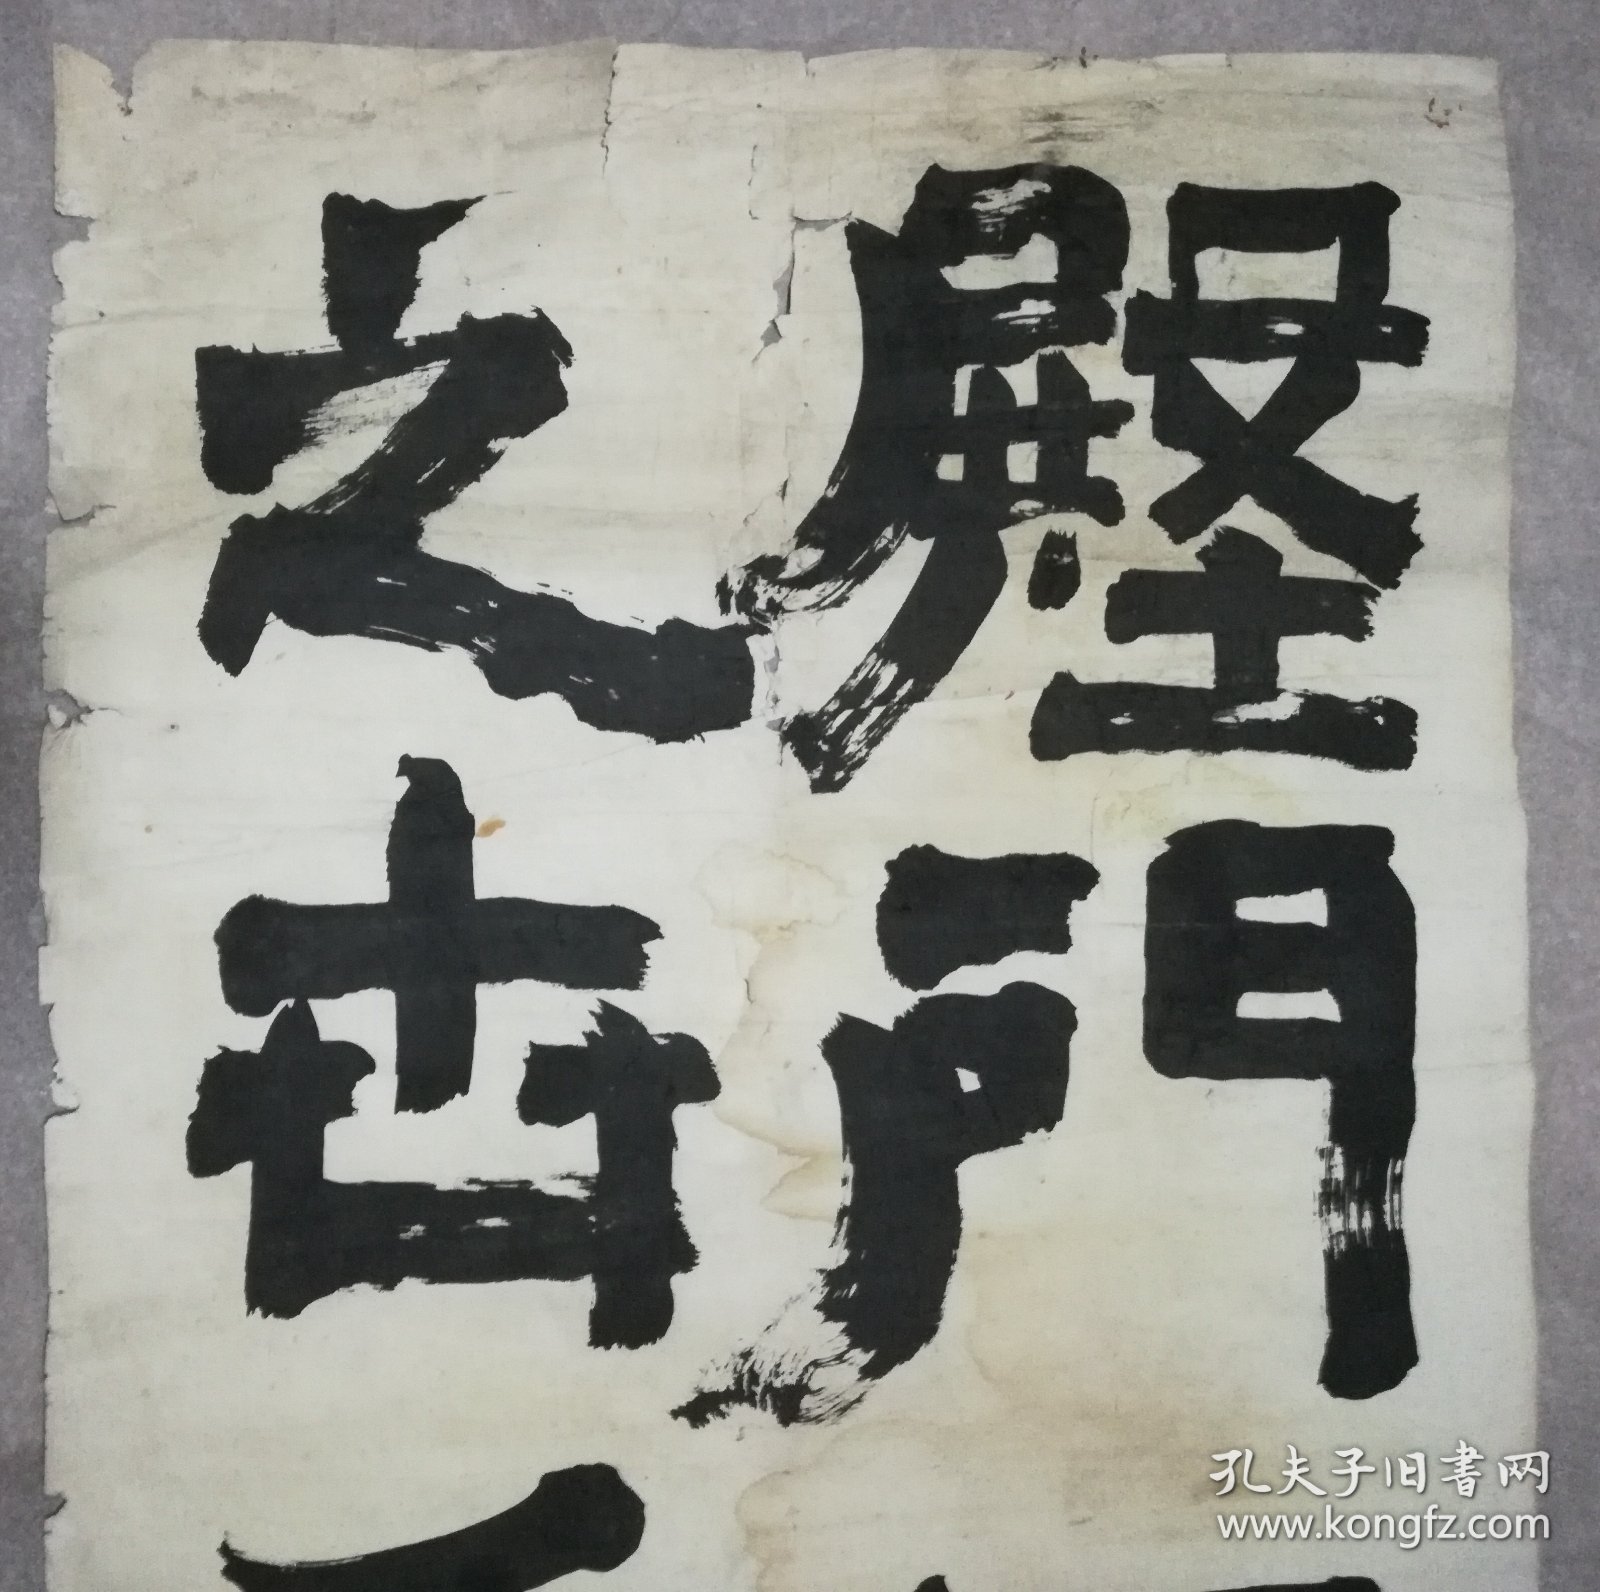 壂門
之
孔夫子旧書网
www.kongfz.com